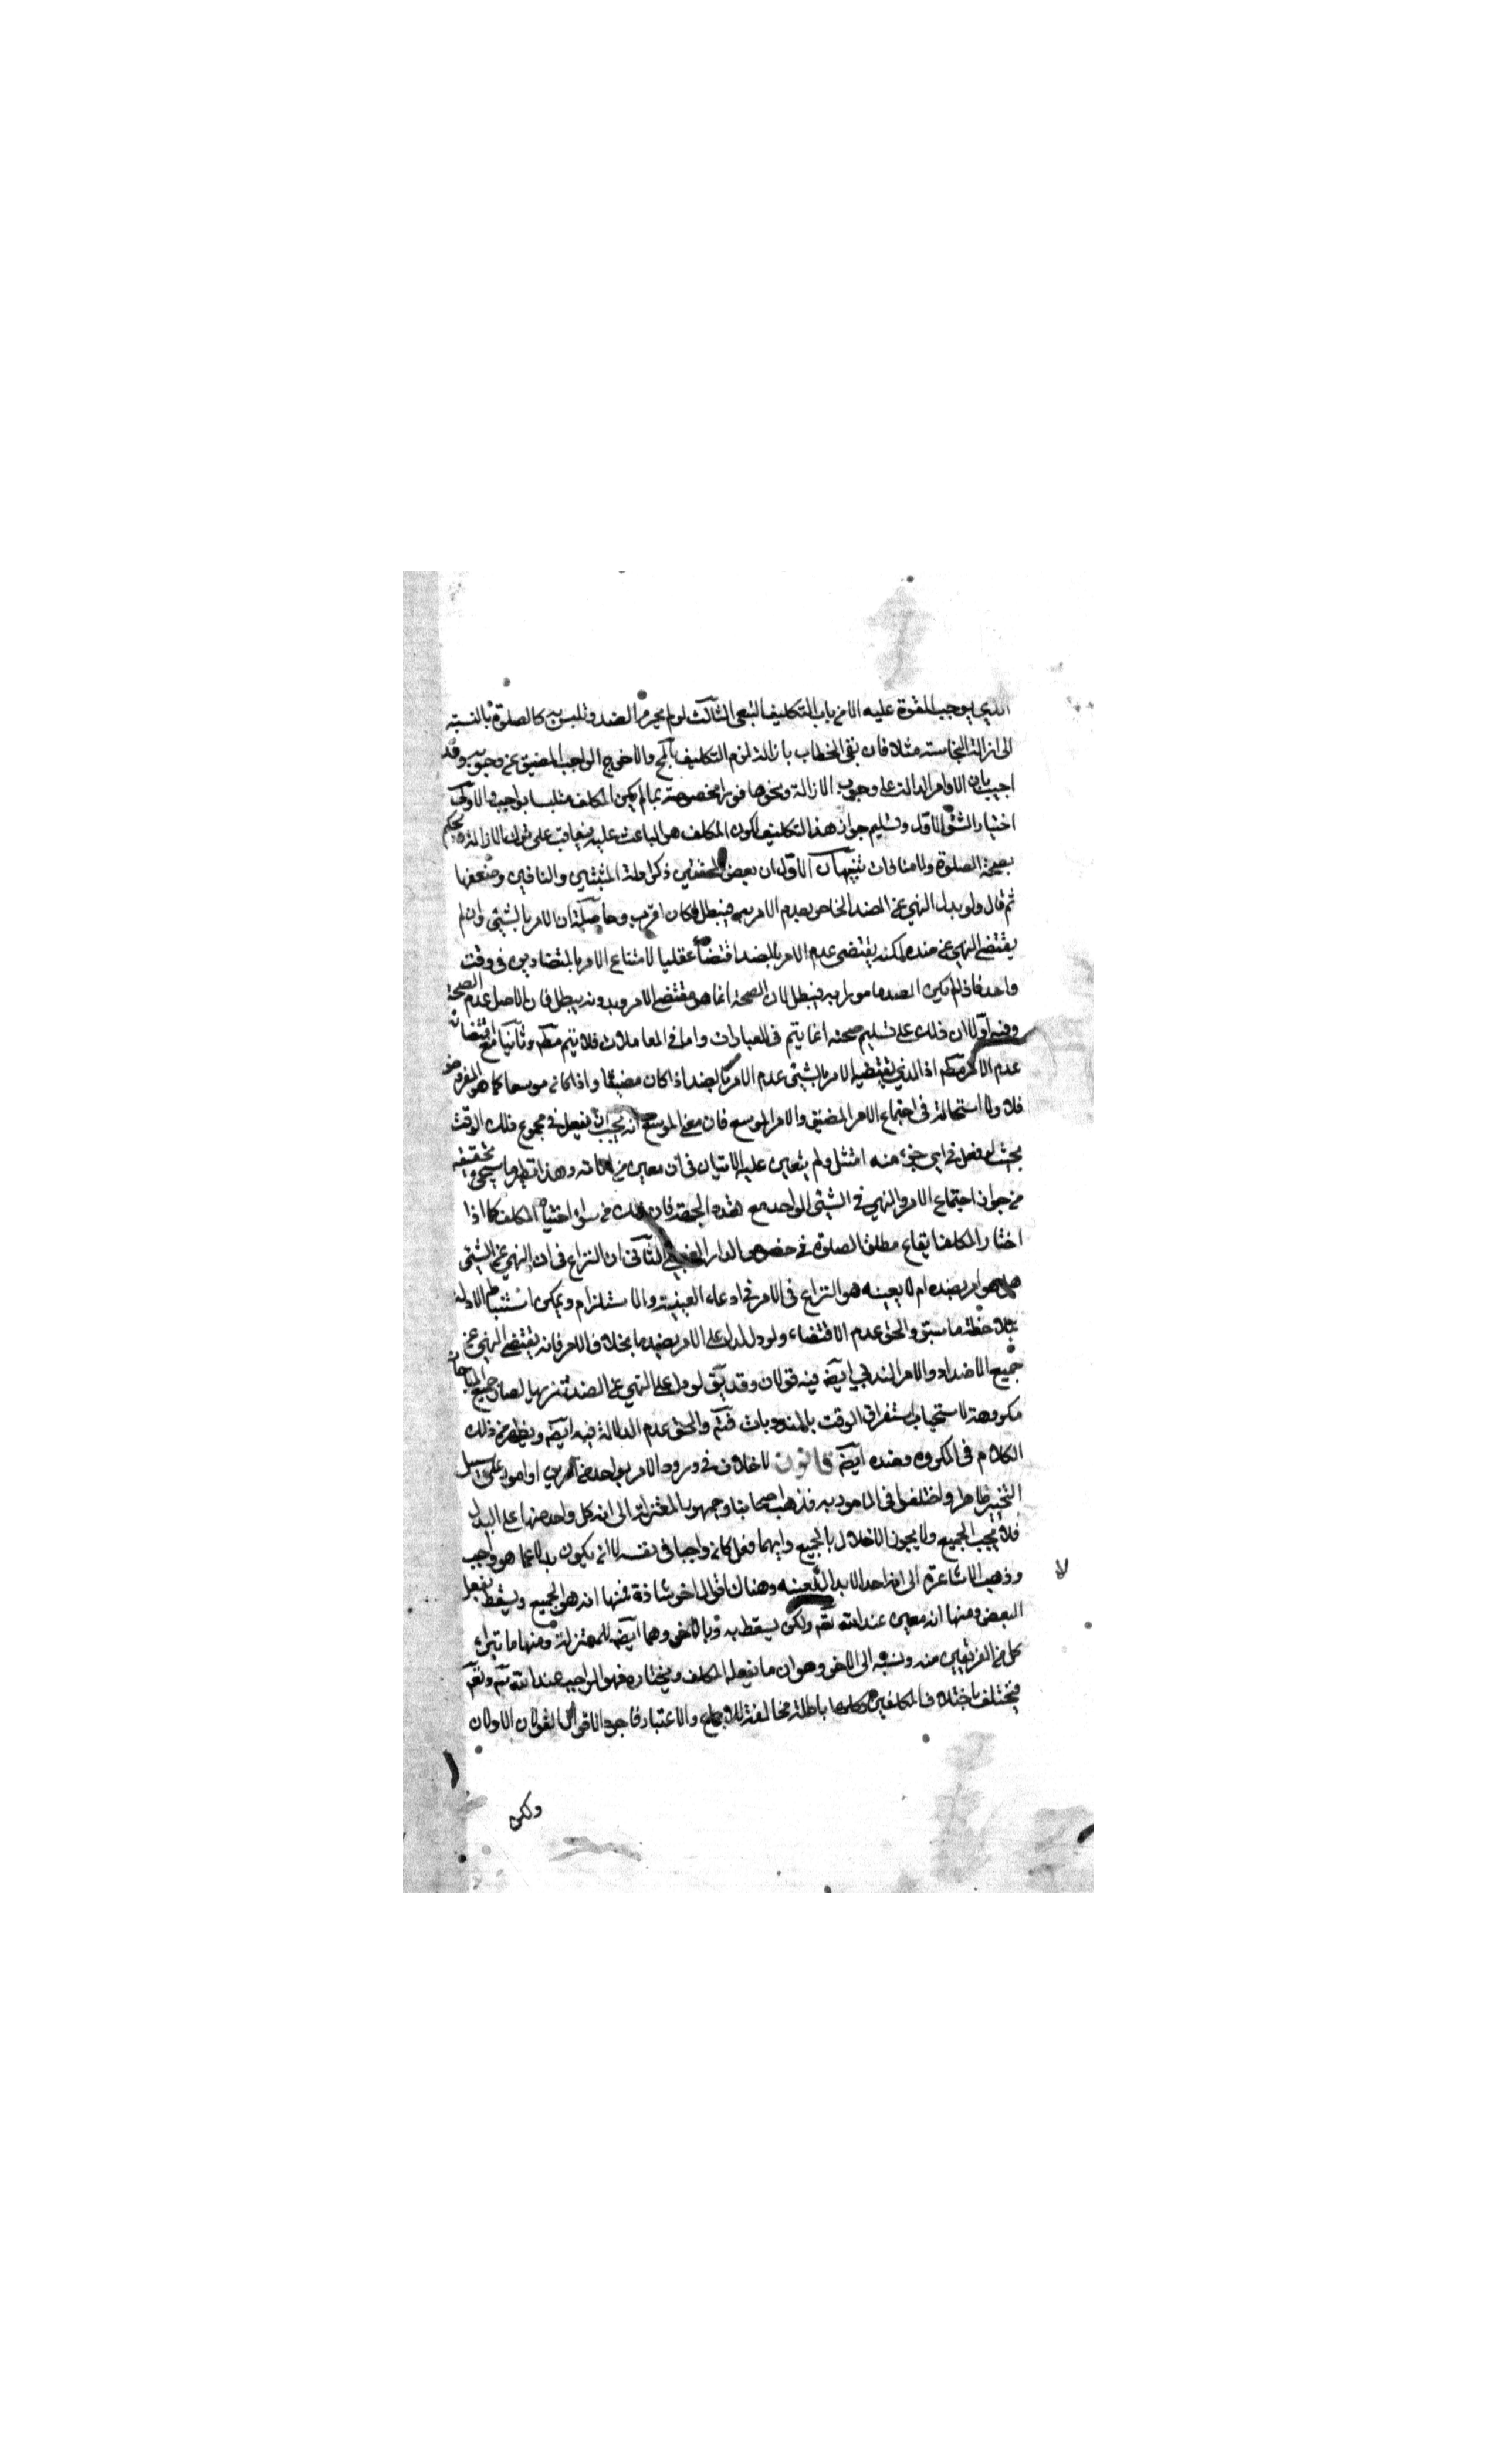 الذي يوجب المقوة عليه الا من باب التكليف التبعي الثالث لو لم يحرم الضد وتلبس به كالصلوة بالنسبة
الى ازالة النجاسة مثلا فان بقى الخطاب بازالته لزم التكليف بالمح والا خرج الواجب المضيق عن وجوبه وقد
اجيب بان الاوامر الدالة على وجوب الازالة ونحوها فورا مخصوصة بما لم يكن المكلف متلبسا بواجب والاولى
اختيار الشق الاول وتسليم جواز هذا التكليف لكون المكلف هو الباعث عليه فيعاقب على ترك الازالة ويحكم
بصحة الصلوة ولا منافات تنبيهان الاول ان بعض المحققين ذكر ادلة المثبتين والنافين وضعفها
ثم قال ولو بدل النهي عن الضد الخاص بعدم الامر به فيبطل لكان اقرب وحاصله ان الامر بالشيء وان لم
يقتض النهي عن ضده لكنه يقتضي عدم الامر بالضد اقتضاء عقليا لامتناع الامر بالمتضادين في وقت
واحد فاذا لم يكن الضد مامورا به فيبطل لان الصحة انما هو مقتضى الامر وبدونه يبطل فان الاصل عدم الصحة
وفيه اولا ان ذلك على تسليم صحته انما يتم في العبادات واما في المعاملات فلا يتم مطلقا وثانيا منع اقتضائه
عدم الامر مطلقا اذ الذي يقتضيه الامر بالشيء عدم الامر بالضد اذا كان مضيقا واذا كان موسعا كما هو المفروض
فلا ولا استحالة في اجتماع الامر المضيق والامر الموسع فان معنى الموسع انه يجب ان يفعل في مجموع ذلك الوقت
بحيث لو فعل في اي جزء منه امتثل ولم يتعين عليه الاتيان في ان معين من اناته وهذا نظير ما سيجيء تحقيقه
من جواز اجتماع الامر والنهي في الشيء الواحد مع تعدد الجهة فان ذلك من سوء اختيار المكلف كما اذا
اختار المكلف ايقاع مطلق الصلوة في خصوص الدار الغصبي الثاني ان النزاع في ان النهي عن الشيء
هل هو امر بضده ام لا بعينه هو النزاع في الامر في ادعاء العينية والاستلزام ويمكن استنباط الادلة
بملاحظة ما سبق والحق عدم الاقتضاء ولو دل لدل على الامر بضد ما بخلاف الامر فانه يقتضي النهي عن
جميع الاضداد والامر الندبي ايضا فيه قولان وقد يق لو دل على النهي عن الضد تنزيها لصار جميع المباحات
مكروهة لاستحباب استغراق الوقت بالمندوبات فتم والحق عدم الدلالة فيه ايضا ويظهر من ذلك
الكلام في المكروه وضده ايضا قانون لا خلاف في ورود الامر بواحد من امرين او امور على سبيل
التخيير ظاهرا واختلفوا في المامور به فذهب اصحابنا وجمهور المعتزلة الى انه كل واحد منها على البدل
فلا يجب الجميع ولا يجوز الاخلال بالجميع وايهما فعل كان واجبا في نفسه لا ان يكون بدلا عما هو واجب
وذهب الاشاعرة الى انه احد الابدال لا بعينه وهناك اقوال اخر شاذة منها انه هو الجميع ويسقط بفعل
لا
البعض ومنها انه معين عند الله تعم ولكن يسقط به وبالاخر وهما ايضا للمعتزلة ومنها ما تبرئ
كل من الفريقين منه ونسبه الى الاخر وهو ان ما يفعله المكلف ويختاره فهو الواجب عند الله تعم
فيختلف باختلاف المكلفين وكلها باطلة مخالفة للاجماع والاعتبار فاجود الاقوال القولان الاولان
ولكن